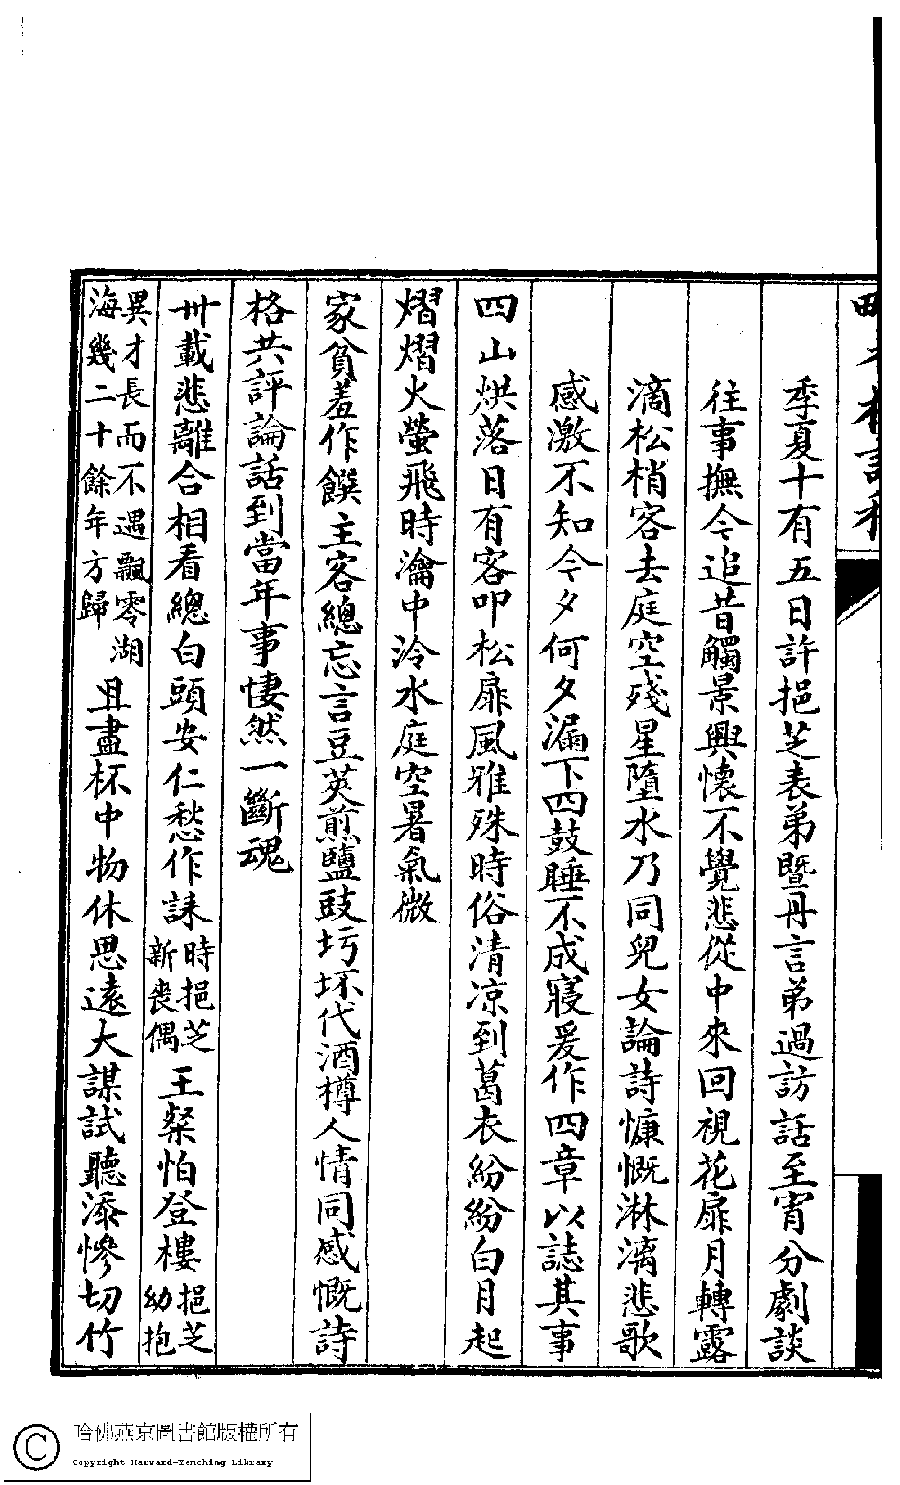 季夏十有五日許挹芝表弟暨丹言弟過訪話至宵分劇談
往事撫今追昔觸景興懷不覺悲從中來回視花扉月轉露
滴松梢客去庭空殘星墮水乃同兒女論詩慷慨淋漓悲歌
感激不知今夕何夕漏下四鼓睡不成寢爰作四章以誌其事
四山烘落日有客叩松扉風雅殊時俗清凉到葛衣紛紛白月起
熠熠火螢飛時瀹中泠水庭空暑氣微
家貧羞作饌主客總忘言豆莢煎鹽豉圬坏代酒樽人情同感慨詩
格共評論話到當年事悽然一斷魂
卅載悲離合相看總白頭安仁愁作誄時挹芝新喪偶王粲怕登樓挹芝幼抱
異才長而不遇飄零湖海幾二十餘年方歸且盡杯中物休思遠大謀試聽添慘切竹
哈佛燕京圖書館版權所有
Copyright Harvard-Yenching Library